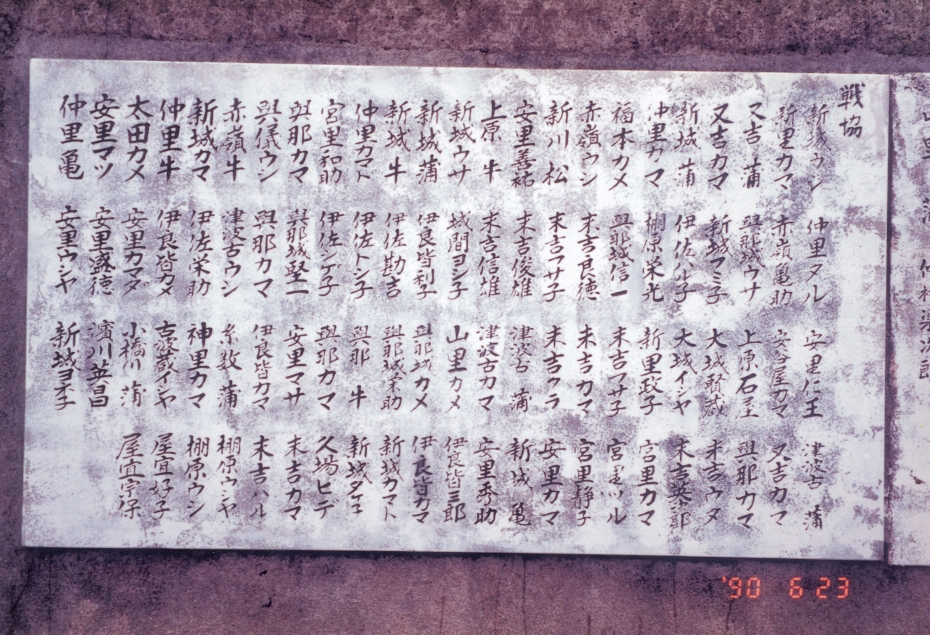 戦協
新城ウシ 仲里タル 安里仁王 津波古 蒲
新里カマ 赤嶺亀助 安谷屋カマ 又吉カマ
又吉 蒲 與那城ウサ 上原石 與那カマ
又吉カマ 新城マミ子 大城賢 末吉ウタ
新城 蒲 伊佐 大城イシヤ 末吉英三郎
仲里カマ 棚原栄光 新里政子 宮里カマ
福本カメ 與那城信一 末吉マサ子 宮里ツル
赤嶺ウシ 末吉良徳 末吉カマ 宮里静子
新川 松 末吉マサ子 末吉ウラ 安里カマ
安里善祐 末吉俊雄 津波古 蒲 新城 亀
上原 牛 末吉信雄 津波古カマ 安里秀助
新城ウサ 城間ヨシ子 山里カメ 伊良皆三郎
新城蒲 伊良皆利子 與那城カメ 伊良皆カマ
新城 牛 伊佐勘吉 與那城栄助 新城カマト
仲里カマト 伊佐トシ子 與那 牛 新城タケ子
宮里和助 伊佐シゲ子 與那カマ 久場ヒデ
與那カマ 與那城堅一 安里マサ 末吉カマ
與儀ウシ 與那カマ 伊良皆カマ 末吉ハル
赤嶺牛 津波古ウシ 糸数 蒲 棚原ウシヤ
新城カマ 伊佐栄助 神里カマ 棚原ウシ
仲里牛 伊良皆カメ 古波蔵イシヤ 屋宜好子
太田カメ 安里カマダ 小橋川 蒲 屋宜宗保
安里マツ 安里盛徳 濱川並昌
仲里亀 安里ウシヤ 新城
'90 6 23